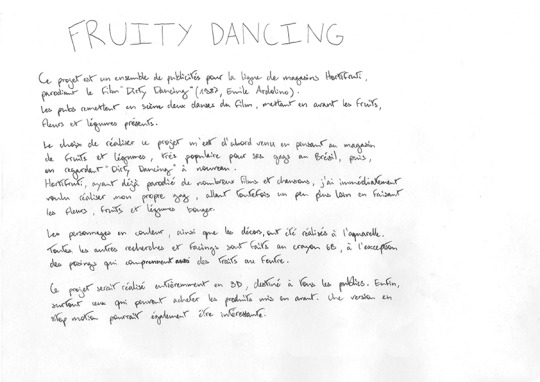 FRUITY DANCING
Ce projet est un ensemble de publicités pour la ligne de magasins Hortifruti,
parodiant le film "Dirty Dancing" (1987, Emile Ardolino).
Les pubs remettent en scène deux danses du film, mettant en avant les fruits,
fleurs et légumes présents.
Le choix de réaliser ce projet m'est d'abord venu en pensant au magasin
de fruits et légumes, très populaire pour ses gags au Brésil, puis,
en regardant "Dirty Dancing" à nouveau.
Hortifruti, ayant déjà parodié de nombreux films et chansons, j'ai immédiatement
voulu réaliser mon propre gag, allant toutefois un peu plus loin en faisant
les fleurs, fruits et légumes bouger.
Les personnages en couleur, ainsi que les décors, ont été réalisés à l'aquarelle.
Toutes les autres recherches et facings sont faits au crayon 6B, à l'exception
des posings qui comprennent aussi des traits au feutre.
Ce projet serait réalisé entièrement en 3D, destiné à tous les publics. Enfin,
surtout ceux qui peuvent acheter les produits mis en avant. Une version en
stop motion pourrait également être intéressante.